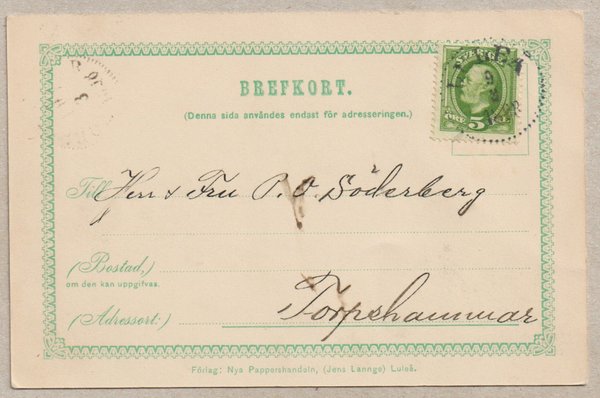 BREFKORT.
(Denna sida användes endast för adresseringen.)
SVERIGE
5
Till Herr & Fru P. O. Söderberg
(Bostad,)
om den kan uppgifvas.
(Adressort:) Torpshammar
Förlag: Nya Pappershandeln, (Jens Lannge) Luleå.